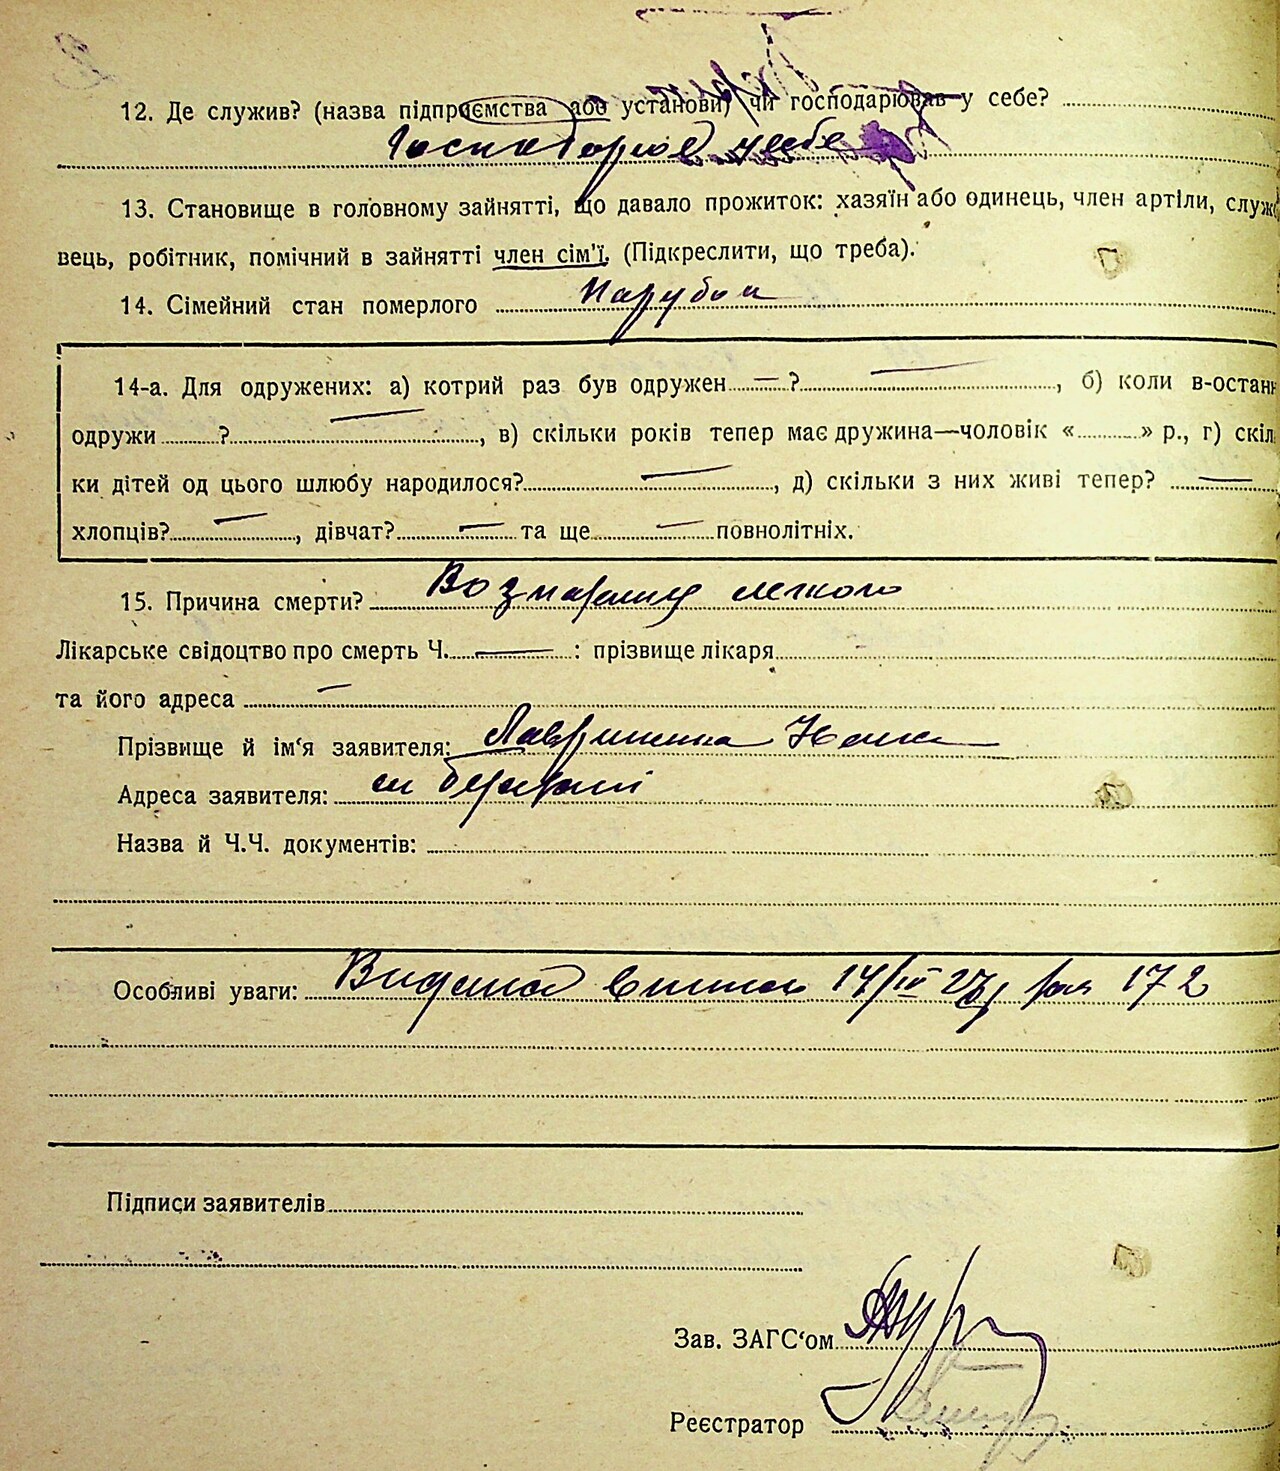 12. Де служив? (назва підприємства або установи) чи господарював у себе?
Господарював у себе
13. Становище в головному зайнятті, що давало прожиток: хазяїн або одинець, член артіли, служ
вець, робітник, помічний в зайнятті член сім'ї. (Підкреслити, що треба).
14. Сімейний стан померлого Парубок
14-а. Для одружених: а) котрий раз був одружен — ? —, б) коли в-остан
одружи ? —, в) скільки років тепер має дружина—чоловік « » р., г) скіль
ки дітей од цього шлюбу народилося? —, д) скільки з них живі тепер? —
хлопців? —, дівчат? — та ще — повнолітніх.
15. Причина смерти? легкого
Лікарське свідоцтво про смерть Ч. — : прізвище лікаря
та його адреса —
Прізвище й ім'я заявителя:
Адреса заявителя:
Назва й Ч.Ч. документів:
Особливі уваги: 14/IV 27 172
Підписи заявителів
Зав. ЗАГС'ом
Реєстратор